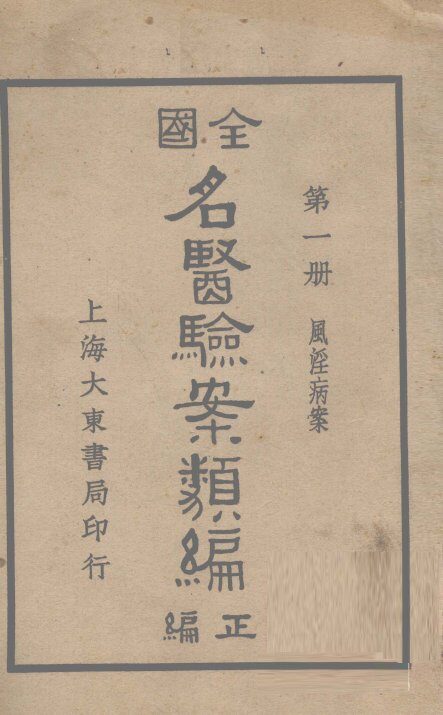 第一册 風淫病案
全國
名醫驗案類編
正編
上海大東書局印行